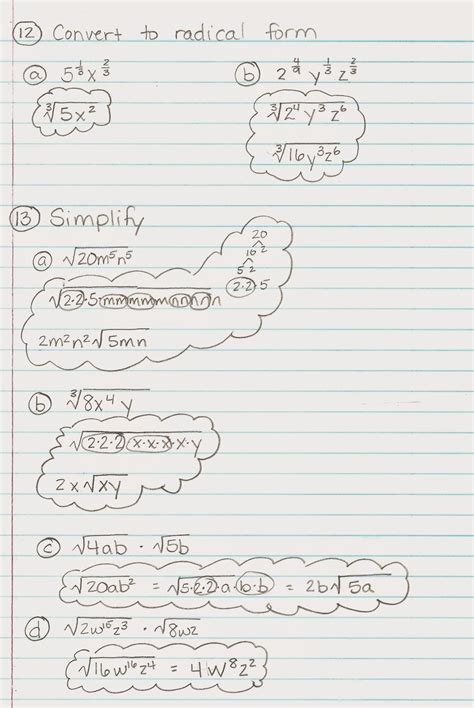 ⑫ Convert to radical form
ⓐ 5^{1/3} x^{2/3}
∛(5x²)
ⓑ 2^{4/9} y^{1/3} z^{2/3}
∛(2⁴ y³ z⁶)
∛(16y³z⁶)
⑬ Simplify
ⓐ √(20m⁵n⁵)
20
10 2
5 2
2·2·5
√(2·2·5·mmmmmnnnnn)
2m²n²√(5mn)
ⓑ ∛(8x⁴y)
√(2·2·2 x·x·x·x·y)
2x√(xy)
ⓒ √(4ab) · √(5b)
√(20ab²) = √(5·2·2·a·b·b) = 2b√(5a)
ⓓ √(2w¹⁵z³) · √(8wz)
√(16w¹⁶z⁴) = 4w⁸z²